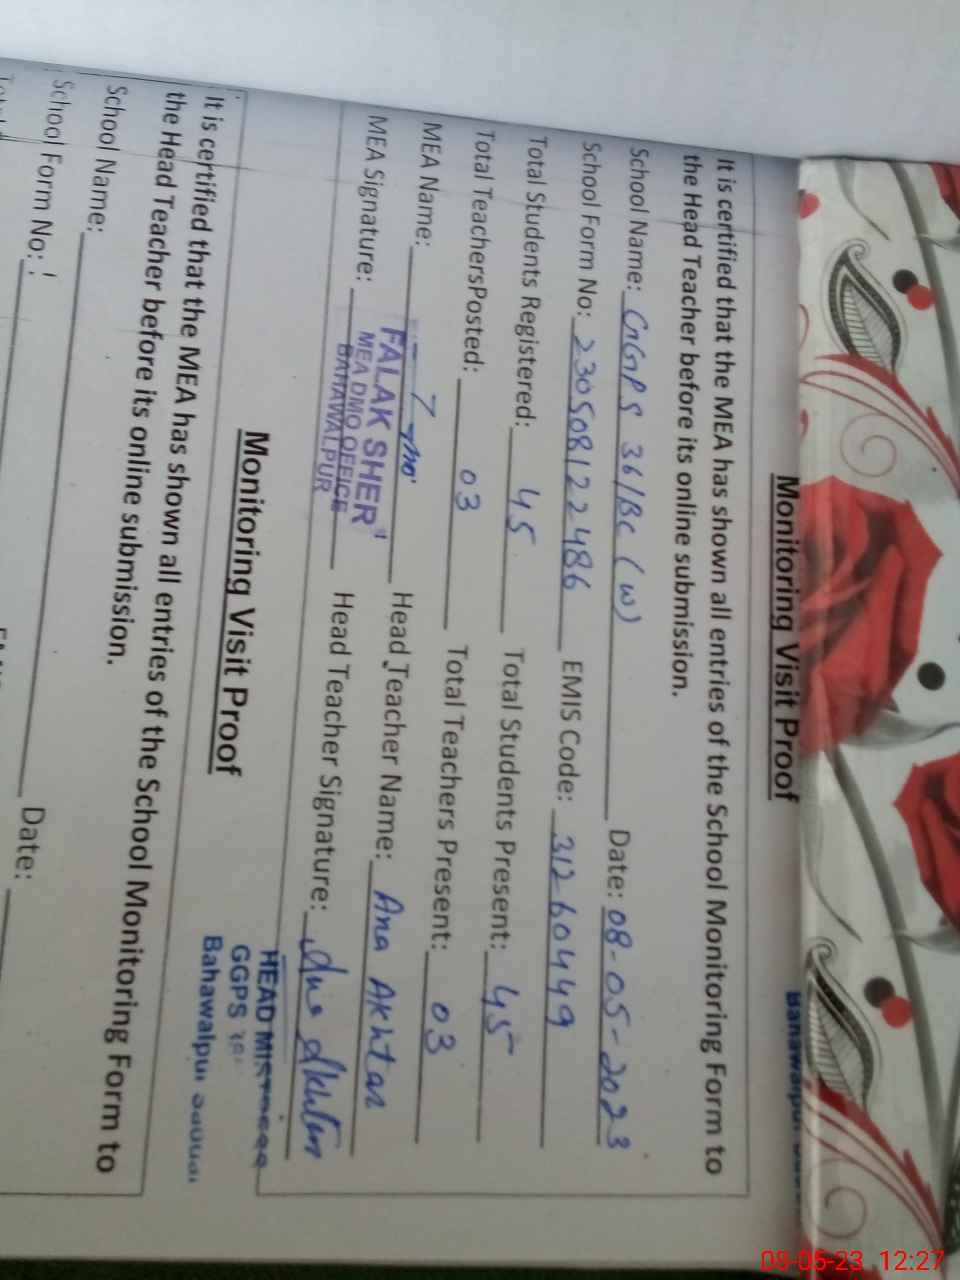 Bahawalpur
Monitoring Visit Proof
It is certified that the MEA has shown all entries of the School Monitoring Form to
the Head Teacher before its online submission.
School Name: GGPS 36/BC (W) Date: 08-05-2023
School Form No: 230508122486 EMIS Code: 31260449
Total Students Registered: 45 Total Students Present: 45
Total TeachersPosted: 03 Total Teachers Present: 03
MEA Name: Head Teacher Name: Ana Akhtar
FALAK SHER
MEA DMO OFFICE
BAHAWALPUR
MEA Signature: Head Teacher Signature:
HEAD MISTRESS
GGPS
Bahawalpur
Monitoring Visit Proof
It is certified that the MEA has shown all entries of the School Monitoring Form to
the Head Teacher before its online submission.
School Name: Date:
School Form No:
08-05-23 12:27